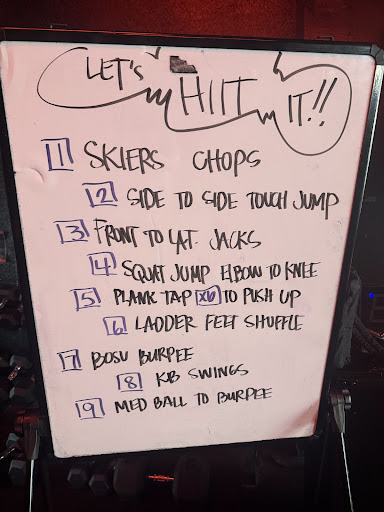 LET'S HIIT IT!!
1 SKIERS CHOPS
2 SIDE TO SIDE TOUCH JUMP
3 FRONT TO LAT. JACKS
4 SQUAT JUMP ELBOW TO KNEE
5 PLANK TAP X6 TO PUSH UP
6 LADDER FEET SHUFFLE
7 BOSU BURPEE
8 KB SWINGS
9 MED BALL TO BURPEE